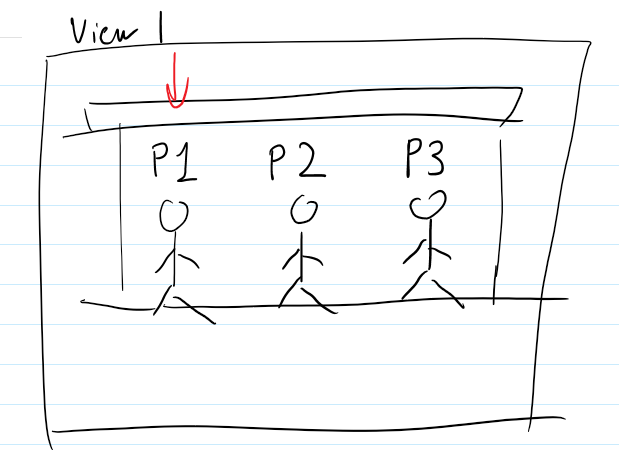 View 1
P1 P2 P3